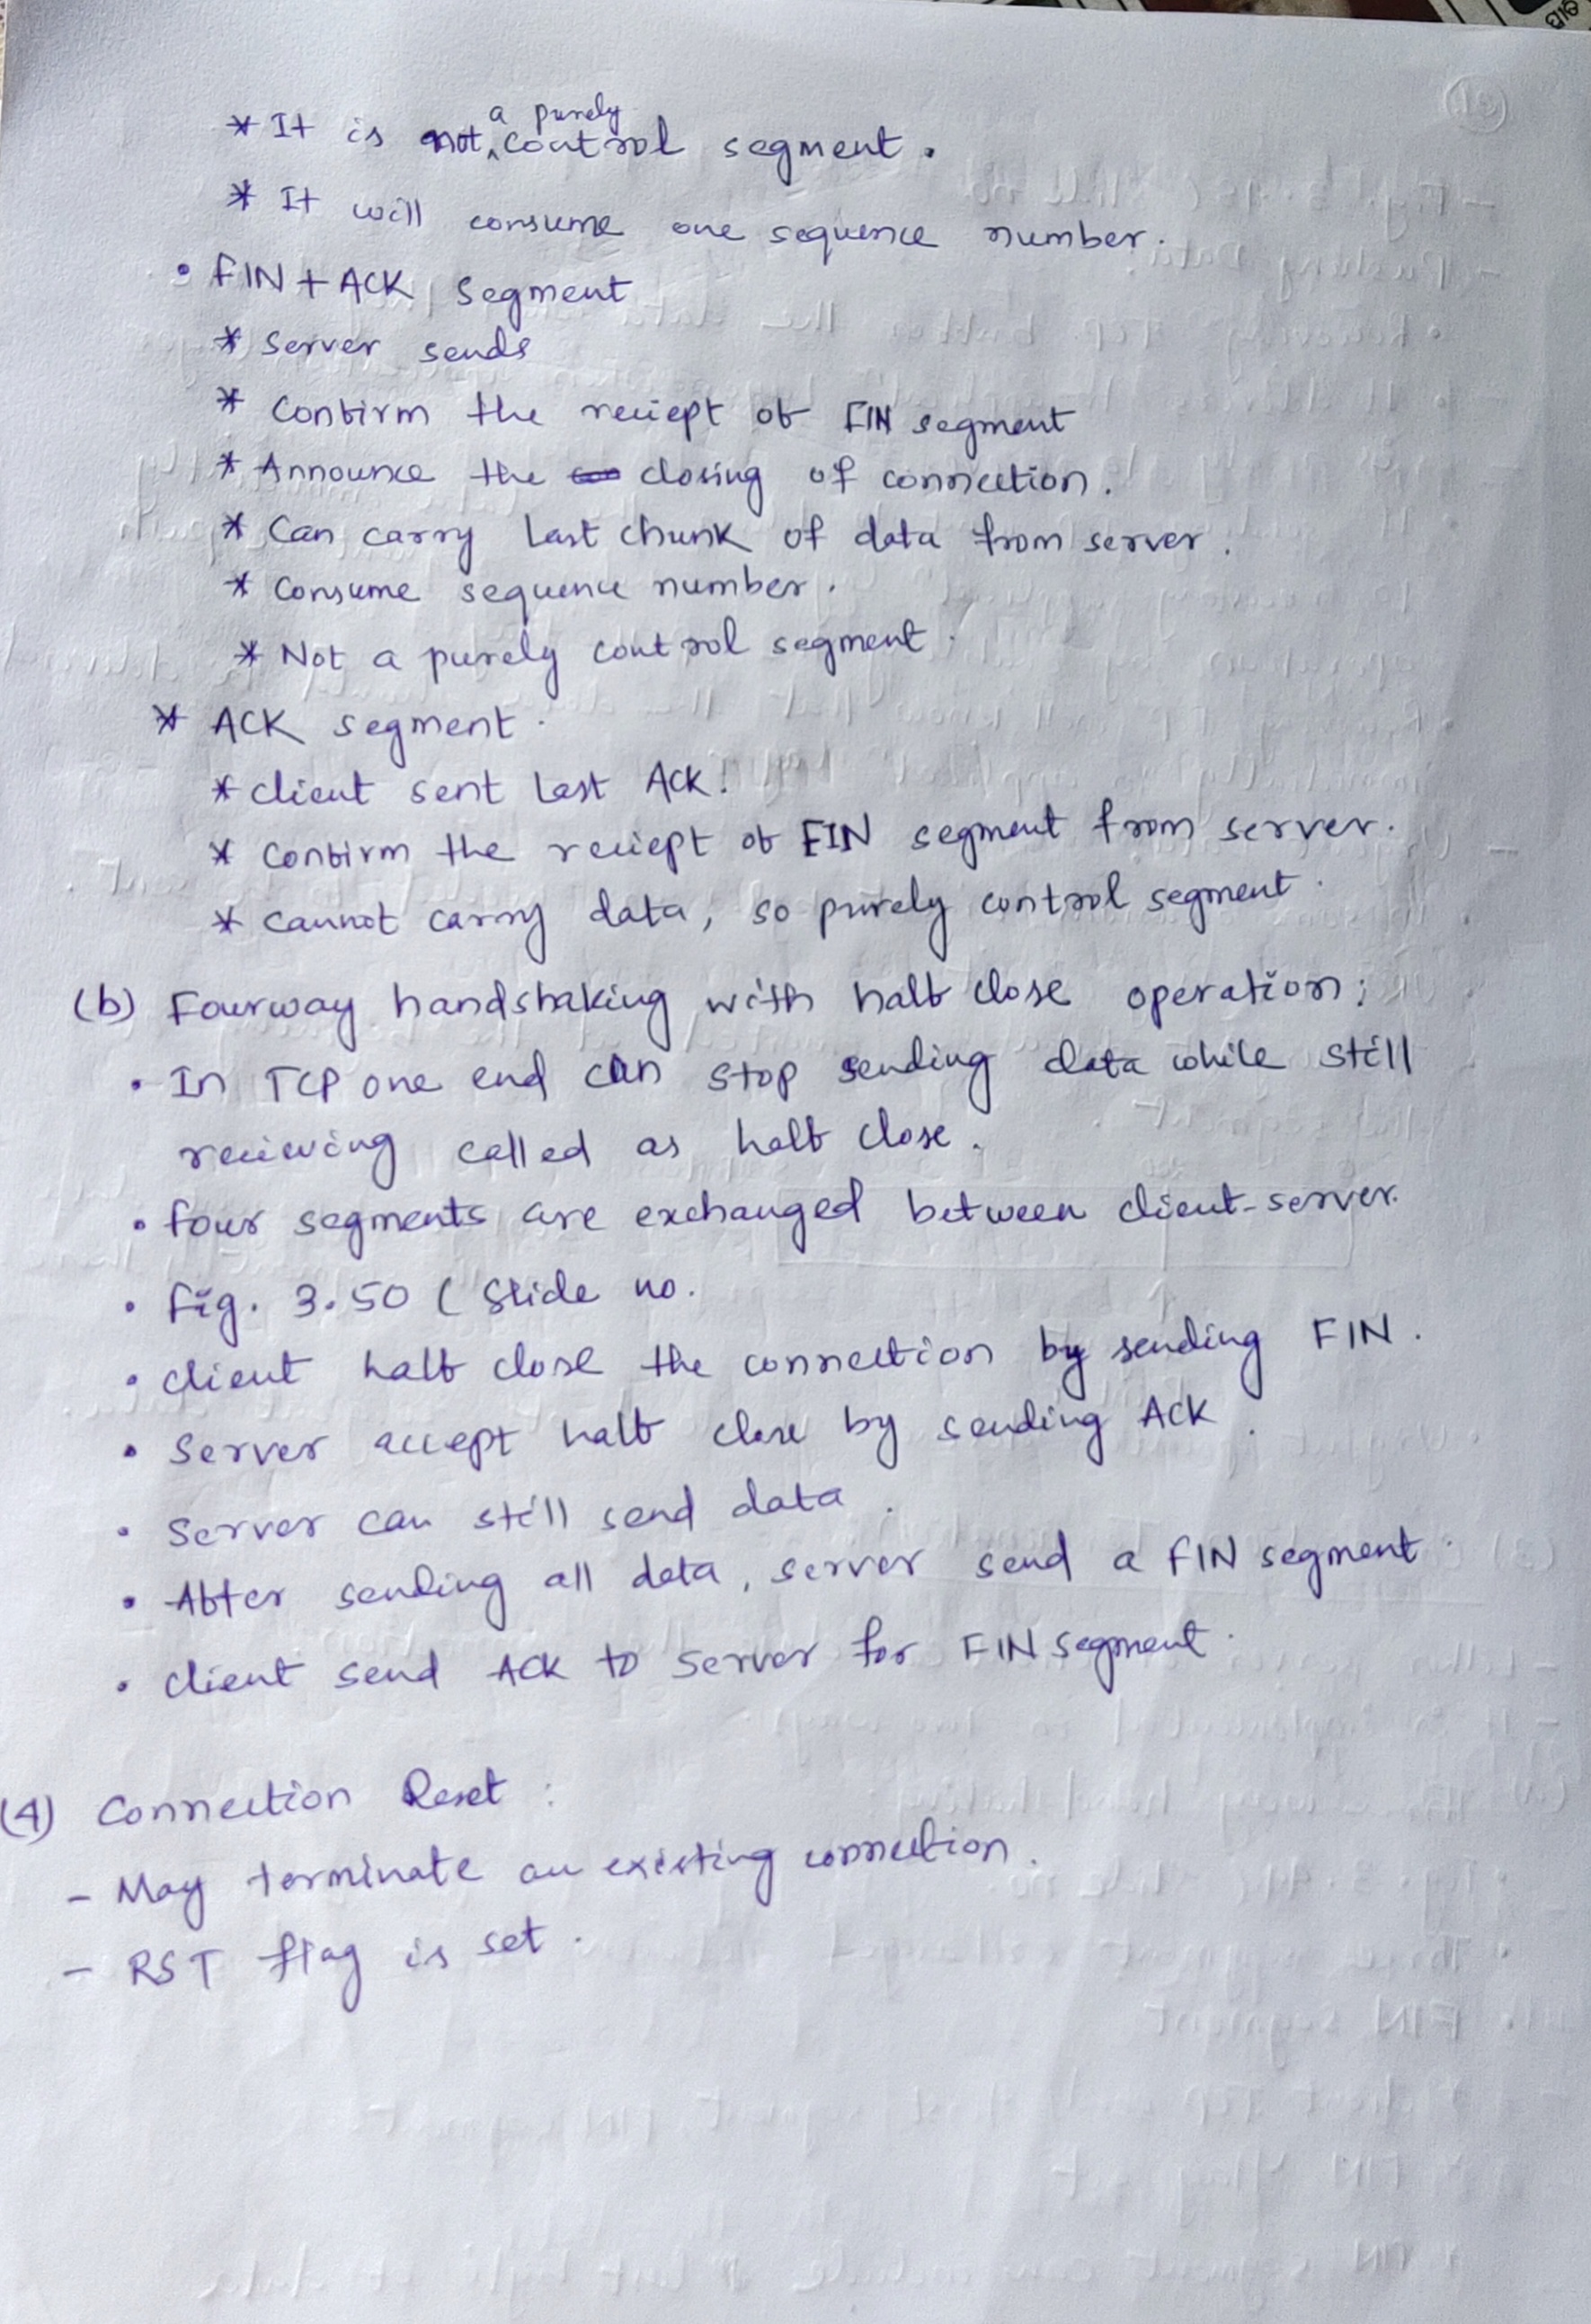 * It is not a purely control segment.
* It will consume one sequence number.
• FIN + ACK segment
* Server sends
* Confirm the reciept of FIN segment
* Announce the closing of connection.
* Can carry last chunk of data from server.
* Consume sequence number.
* Not a purely control segment.
* ACK segment.
* client sent last ACK.
* Confirm the reciept of FIN segment from server.
* cannot carry data, so purely control segment.
(b) Fourway handshaking with half close operation:
• In TCP one end can stop sending data while still
recieving called as half close.
• four segments are exchanged between client-server.
• fig. 3.50 ( Slide no.
• client half close the connection by sending FIN.
• Server accept half close by sending ACK.
• Server can still send data.
• After sending all data, server send a FIN segment.
• client send ACK to server for FIN segment.
(4) Connection Reset :
- May terminate an existing connection.
- RST flag is set.